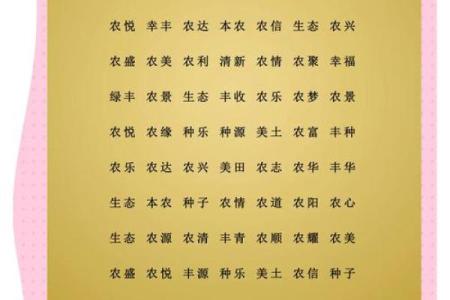 农悦 幸丰 农达 本农 农信 生态 农兴
农盛 农美 农利 清新 农情 农聚 幸福
绿丰 农景 生态 丰收 农乐 农梦 农景
农悦 农缘 种乐 种源 美土 农富 丰种
农乐 农达 农兴 美田 农志 农华 丰华
生态 本农 种子 农情 农道 农阳 农心
生态 农源 农清 丰青 农顺 农耀 农美
农盛 农悦 丰源 种乐 美土 农信 种子